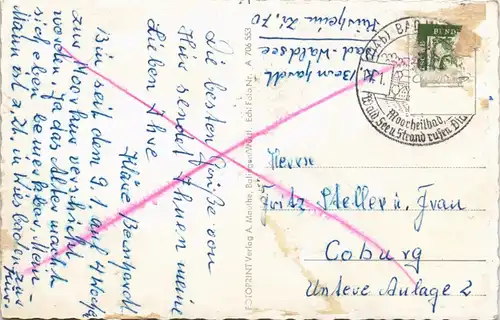 Die besten Grüße von
hier sendet Ihnen meine
Lieben Ihre
Kläre Bernhardt
Bin seit dem 9.1. auf 4 Woch.
zur Moorkur verschickt
worden. Ja das Alter macht
sich eben bemerkbar, Mein
Mann ist z. Zt. in Wiesbaden zur
Kur.
FOTOPRINT Verlag A. Mauthe, Balingen/Württ. Echt Foto Nr. A 706 553
Kl. Bernhardt
Bad Waldsee
Kurheim Zi. 70
BAD
Moorheilbad,
Wald See u. Strand rufen
Herrn
Fritz Steller u. Frau
Coburg
Untere Anlage 2